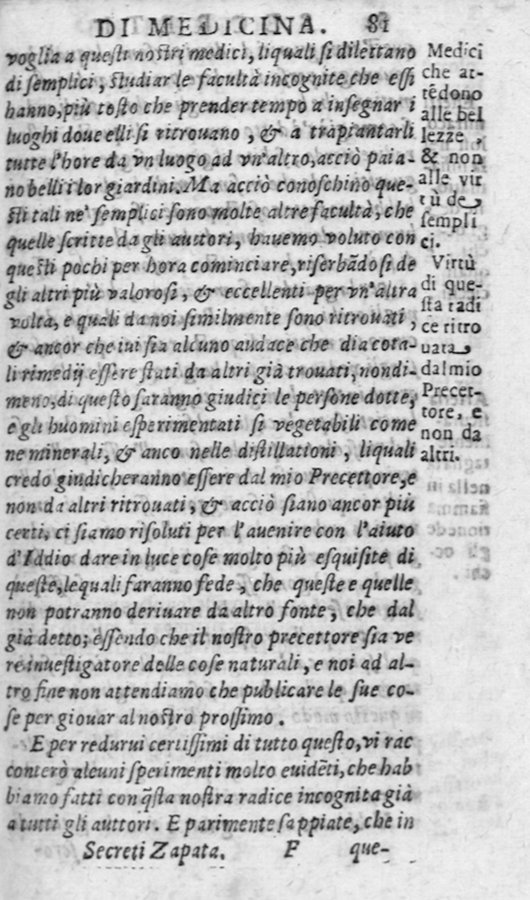 DI MEDICINA. 81
voglia a questi nostri medici, liquali si dilettano
di semplici, studiar le facultà incognite che essi
hanno, più tosto che prender tempo a insegnar i
luoghi doue elli si ritrouano, & a trapiantarli
tutte l'hore da vn luogo ad vn'altro, acciò paia-
no belli i lor giardini. Ma acciò conoschino que-
sti tali ne' semplici sono molte altre facultà, che
quelle scritte da gli auttori, hauemo voluto con
questi pochi per hora cominciare, riserbãdosi de
gli altri più valorosi, & eccellenti per vn'altra
volta, e quali da noi similmente sono ritrouati,
& ancor che iui sia alcuno audace che dia cota-
li rimedij essere stati da altri già trouati, nondi-
meno, di questo saranno giudici le persone dotte,
e gli huomini esperimentati sì vegetabili come
ne minerali, & anco nelle distillationi, liquali
credo giudicheranno essere dal mio Precettore, e
non da altri ritrouati, & acciò siano ancor più
certi, ci siamo risoluti per l'auenire con l'aiuto
d'Iddio dare in luce cose molto più esquisite di
queste, lequali faranno fede, che queste e quelle
non potranno deriuare da altro fonte, che dal
già detto; essendo che il nostro precettore sia ve
re inuestigatore delle cose naturali, e noi ad al-
tro fine non attendiamo che publicare le sue co-
se per giouar al nostro prossimo.
E per redurui certissimi di tutto questo, vi rac
conterò alcuni sperimenti molto euidẽti, che hab
biamo fatti con q̃sta nostra radice incognita già
a tutti gli auttori. E parimente sappiate, che in
Secreti Zapata. F que-
Medici
che at-
tẽdono
alle bel
lezze,
& non
alle vir
tù de
sempli
ci.
Virtù
di que-
sta radi
ce ritro
uata
dal mio
Precet-
tore, e
non da
altri.